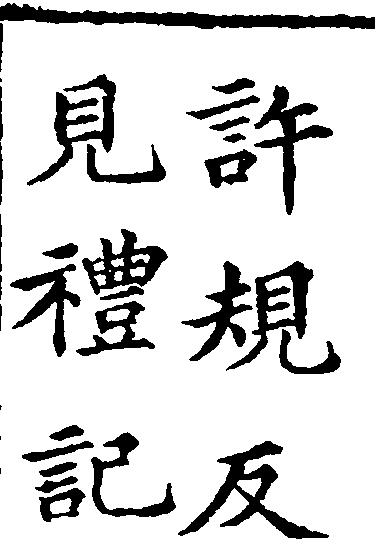 許規反
見禮記